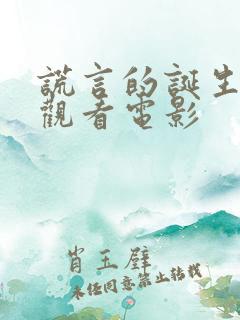 謊言的誕生
觀看電影
肖玉璧
未经同意禁止转载